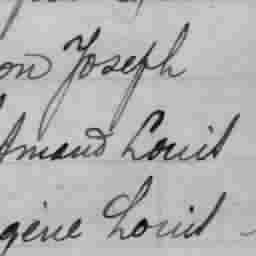 on Joseph
Amand Louis
gène Louis